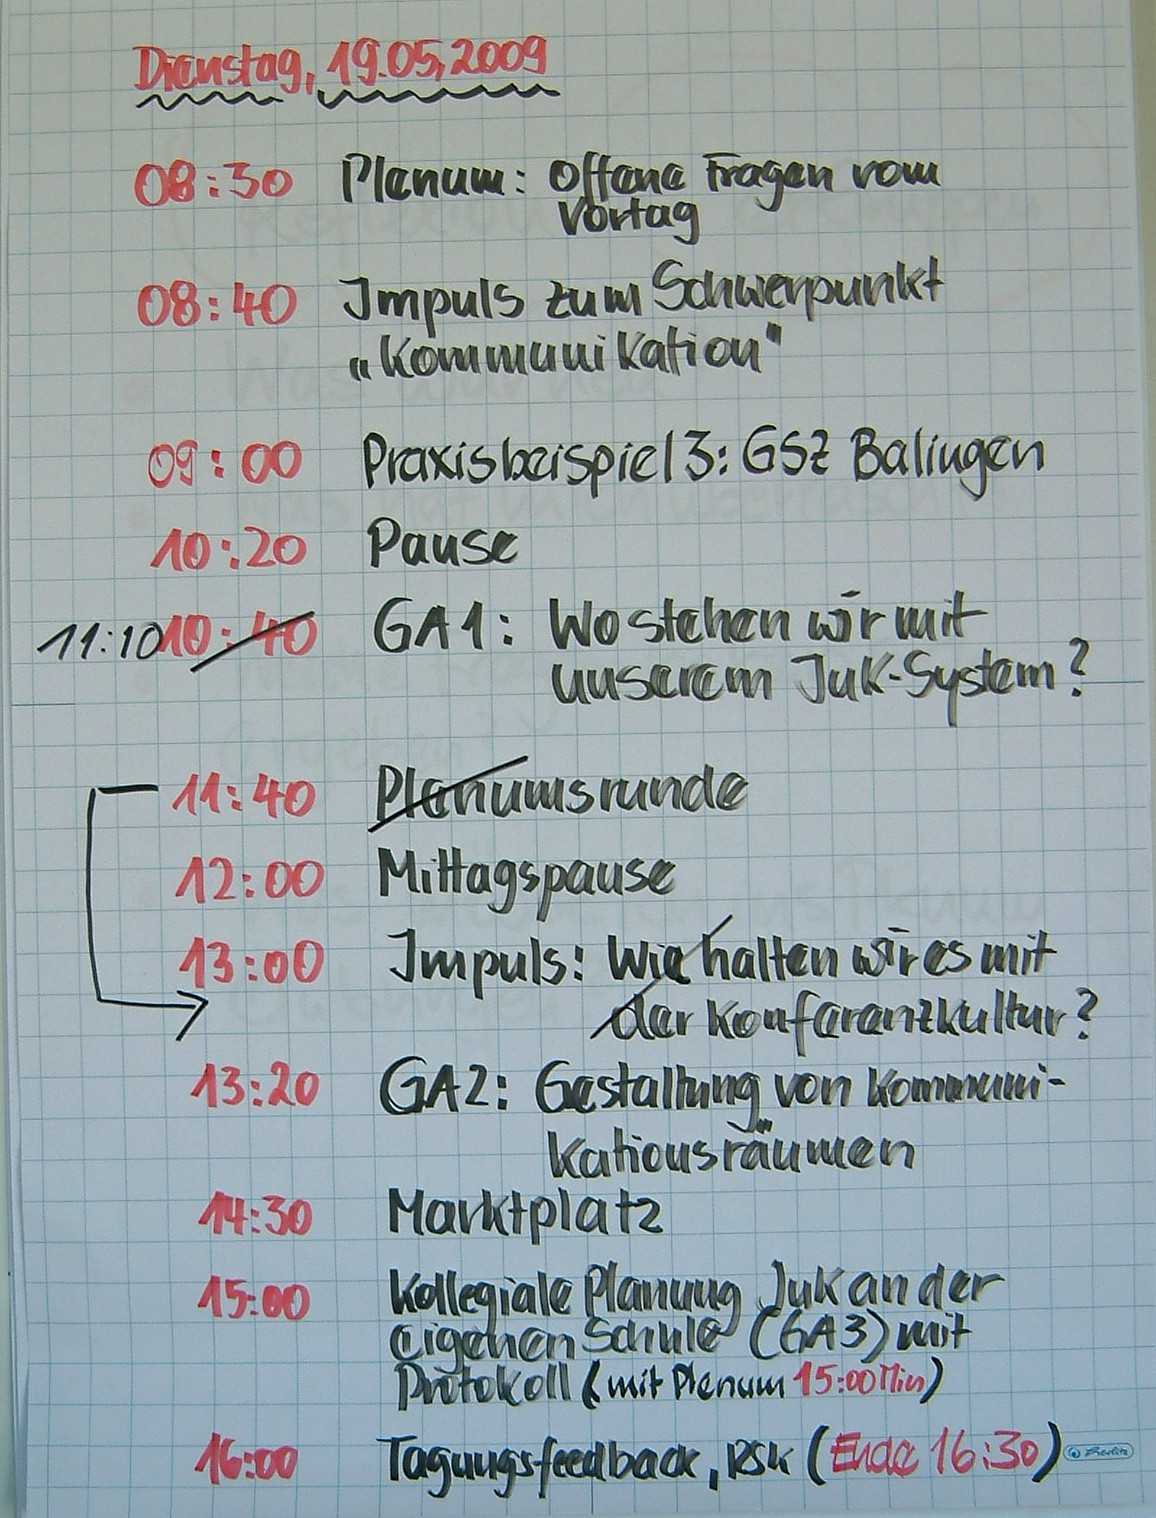 Dienstag, 19.05.2009
08:30 Plenum: Offene Fragen vom
Vortag
08:40 Impuls zum Schwerpunkt
„Kommunikation"
09:00 Praxisbeispiel 3: GSZ Balingen
10:20 Pause
11:10 10:40 GA1: Wo stehen wir mit
unserem JuK-System?
11:40 Plenumsrunde
12:00 Mittagspause
13:00 Impuls: Wie halten wir es mit
der Konferenzkultur?
13:20 GA2: Gestaltung von Kommuni-
kationsräumen
14:30 Marktplatz
15:00 Kollegiale Planung JuK an der
eigenen Schule (GA3) mit
Protokoll (mit Plenum 15:00 Min)
16:00 Tagungsfeedback, RSK (Ende 16:30)